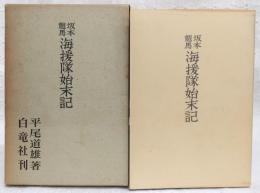 坂本龍馬
海援隊始末記
平尾道雄著
白竜社刊
坂本龍馬
海援隊始末記